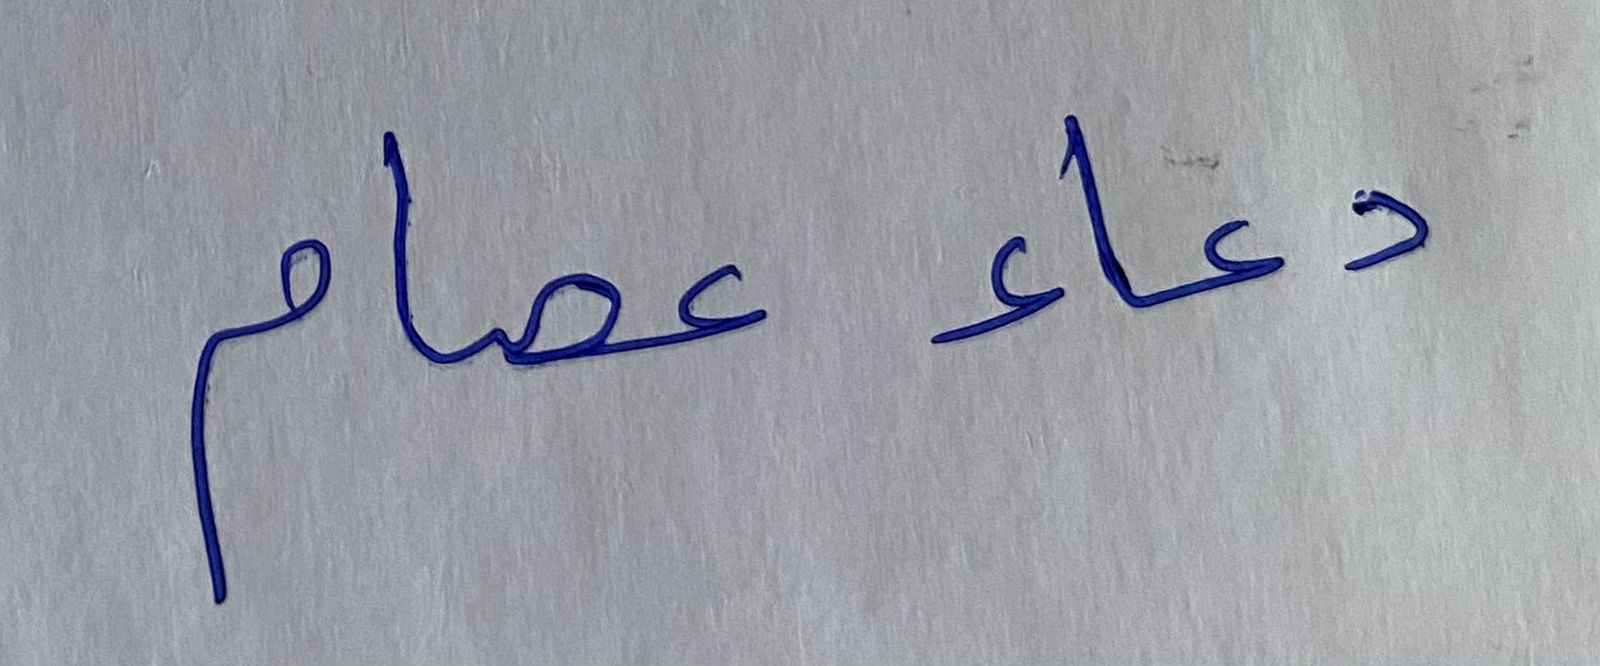 دعاء عصام